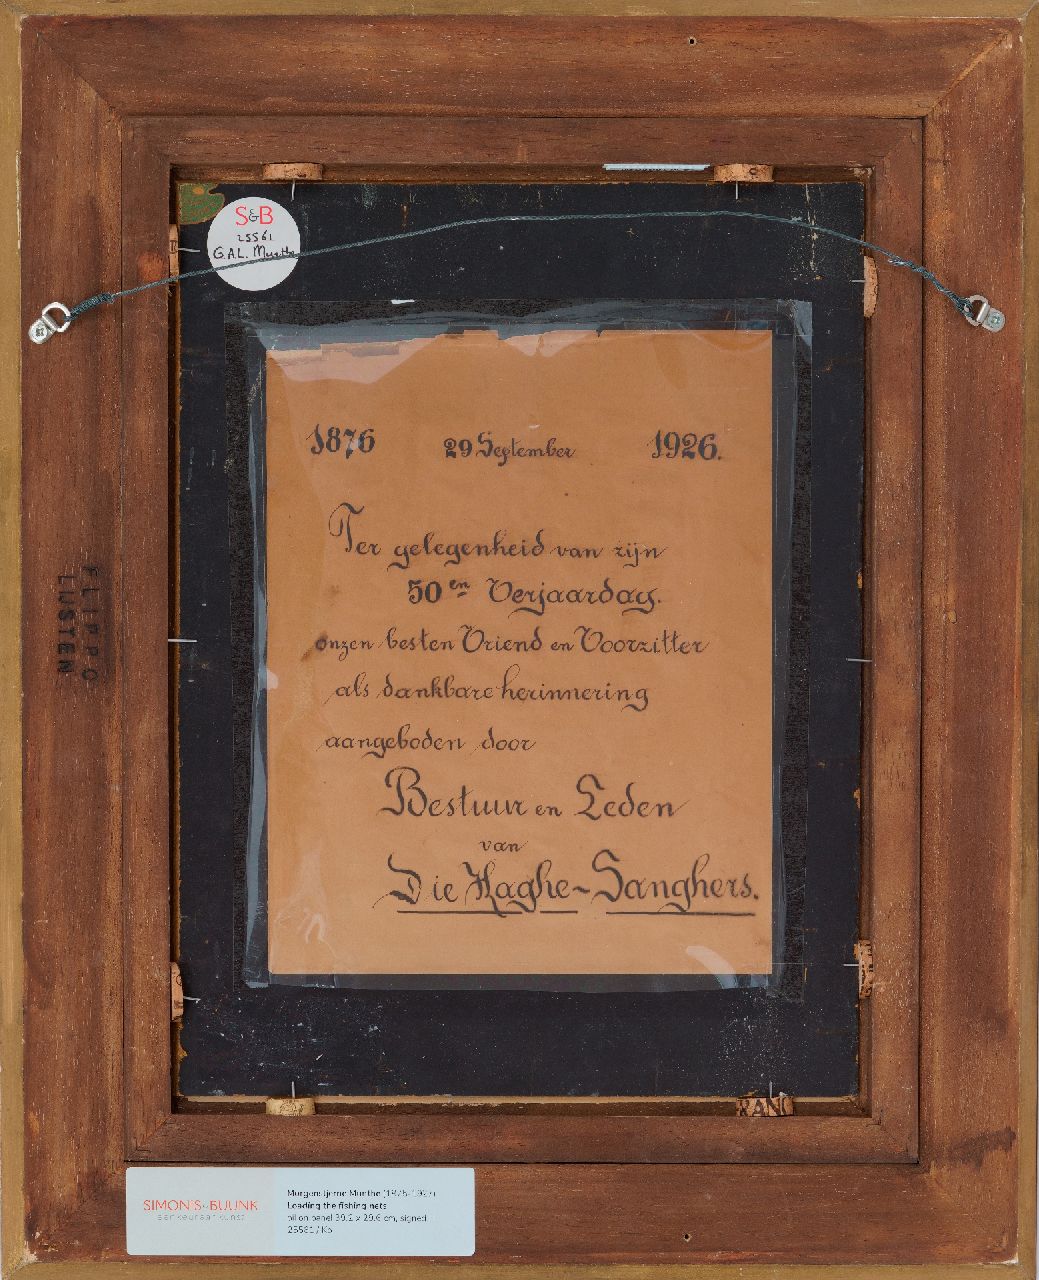 S&B
25561
G.A.L. Munthe
1876 29 September 1926.
Ter gelegenheid van zijn
50en Verjaardag.
onzen besten Vriend en Voorzitter
als dankbare herinnering
aangeboden door
Bestuur en Leden
van
Die Haghe-Sanghers.
FLIPPO
LIJSTEN
RANC
SIMONIS & BUUNK
aankeuraan kunst
Morgenstjerne Munthe (1875-1927)
Loading the fishing nets
oil on panel 39.2 x 29.6 cm, signed
25561 / Kb